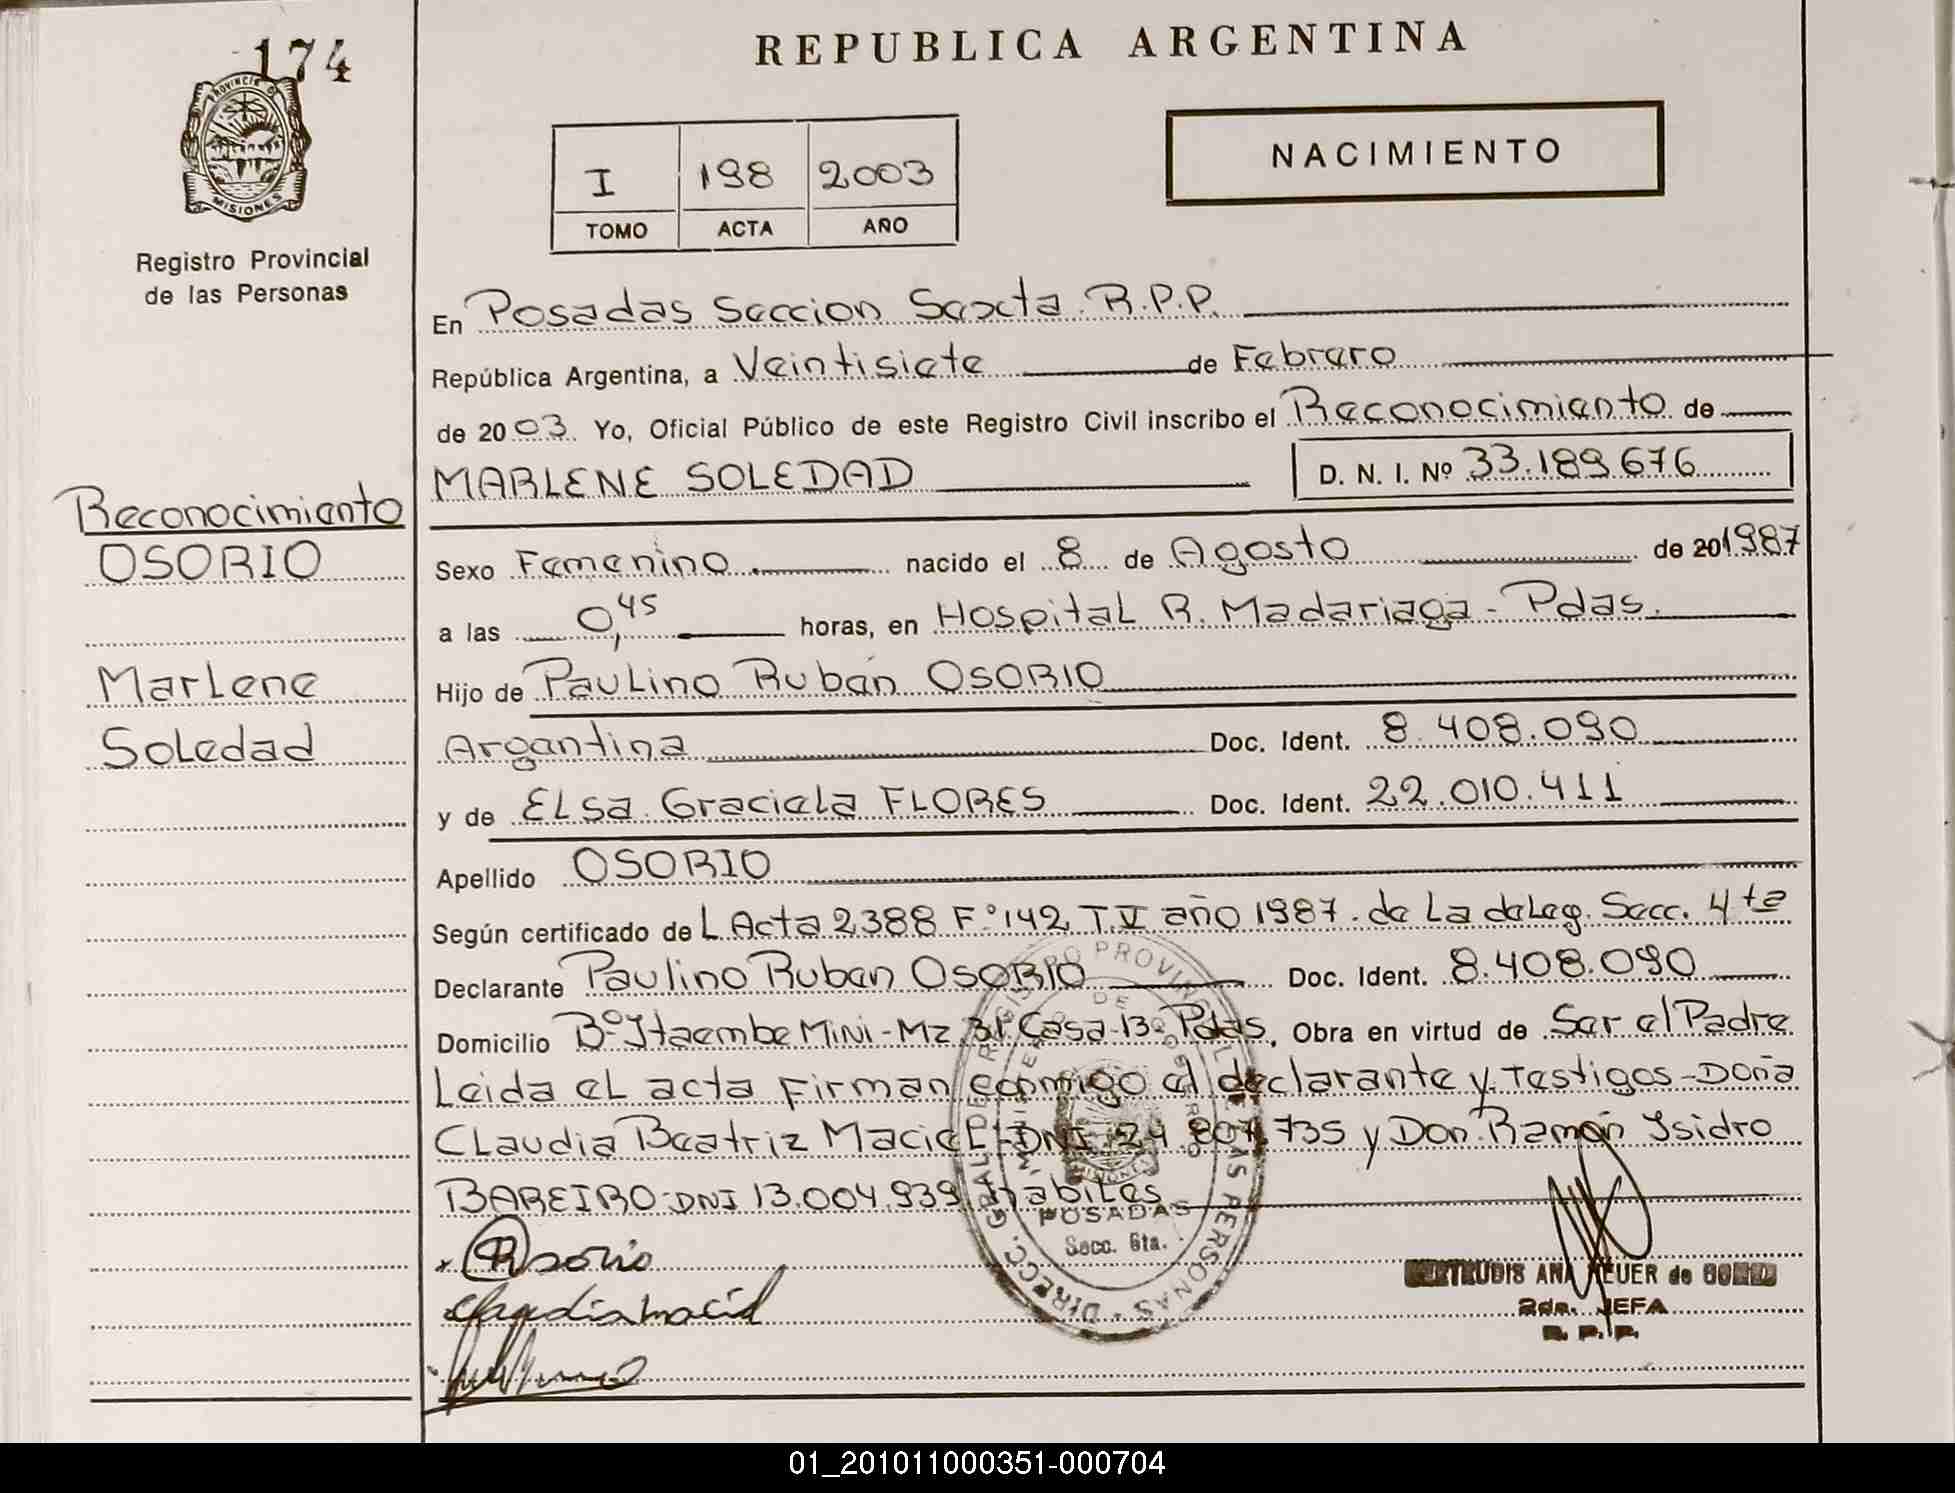 174
PROVINCIA DE
MISIONES
Registro Provincial
de las Personas
REPUBLICA ARGENTINA
I 198 2003
TOMO ACTA AÑO
NACIMIENTO
En Posadas Seccion Sexta. R.P.P.
República Argentina, a Veintisiete de Febrero
de 2003. Yo, Oficial Público de este Registro Civil inscribo el Reconocimiento de
MARLENE SOLEDAD D. N. I. Nº 33.189.676
Reconocimiento
OSORIO
Marlene
Soledad
Sexo Femenino nacido el 8 de Agosto de 201987
a las 0,45 horas, en Hospital R. Madariaga - Pdas.
Hijo de Paulino Ruben OSORIO
Argentina Doc. Ident. 8.408.090
y de ELsa Graciela FLORES Doc. Ident. 22.010.411
Apellido OSORIO
Según certificado de L Acta 2388 Fº 142 T.V año 1987. de La deleg. Secc. 4ta
Declarante Paulino Ruben OSORIO Doc. Ident. 8.408.090
Domicilio Bº Itaembe Mini - Mz 31 Casa 13 - Pdas, Obra en virtud de Ser el Padre
Leida el acta Firman conmigo el declarante y Testigos - Doña
Claudia Beatriz Maciel - DNI 24.807.735 y Don Ramón Isidro
BAREIRO - DNI 13.004.939 Habiles
DIRECC. GRAL. DE REGISTRO PROVINCIAL DE LAS PERSONAS
MINISTERIO DE GOBIERNO
MISIONES
POSADAS
Secc. 6ta.
Osorio
Claudia Maciel
GERTRUDIS ANA de
2da. JEFA
R. P. P.
01_201011000351-000704